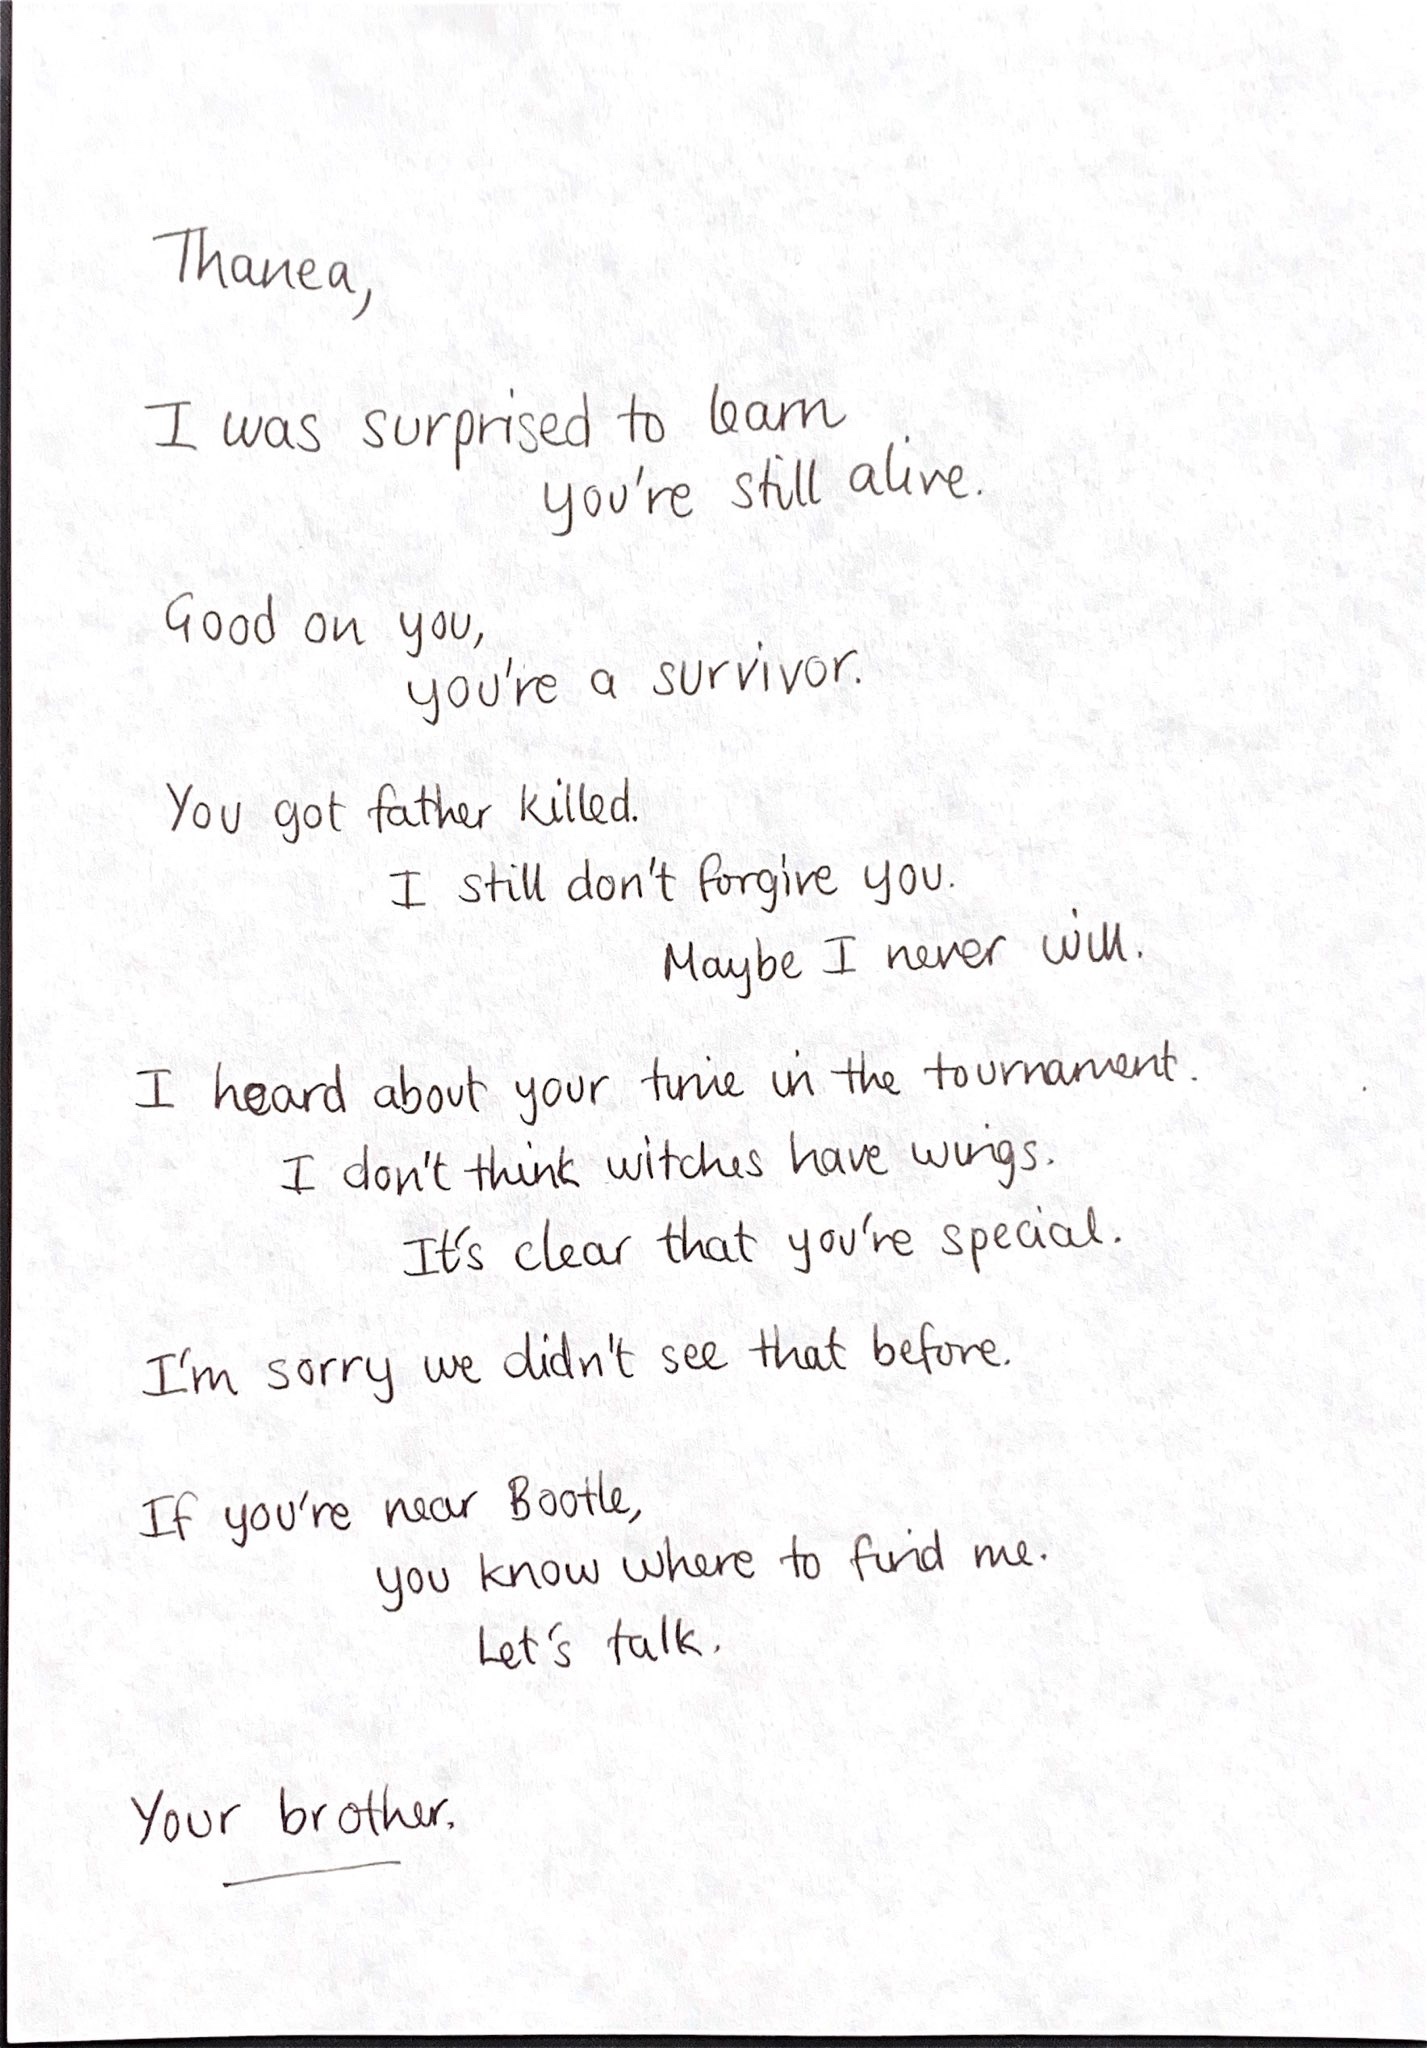 Thanea,
I was surprised to learn
you're still alive.
Good on you,
you're a survivor.
You got father killed.
I still don't forgive you.
Maybe I never will.
I heard about your time in the tournament.
I don't think witches have wings.
It's clear that you're special.
I'm sorry we didn't see that before.
If you're near Bootle,
you know where to find me.
Let's talk.
Your brother.